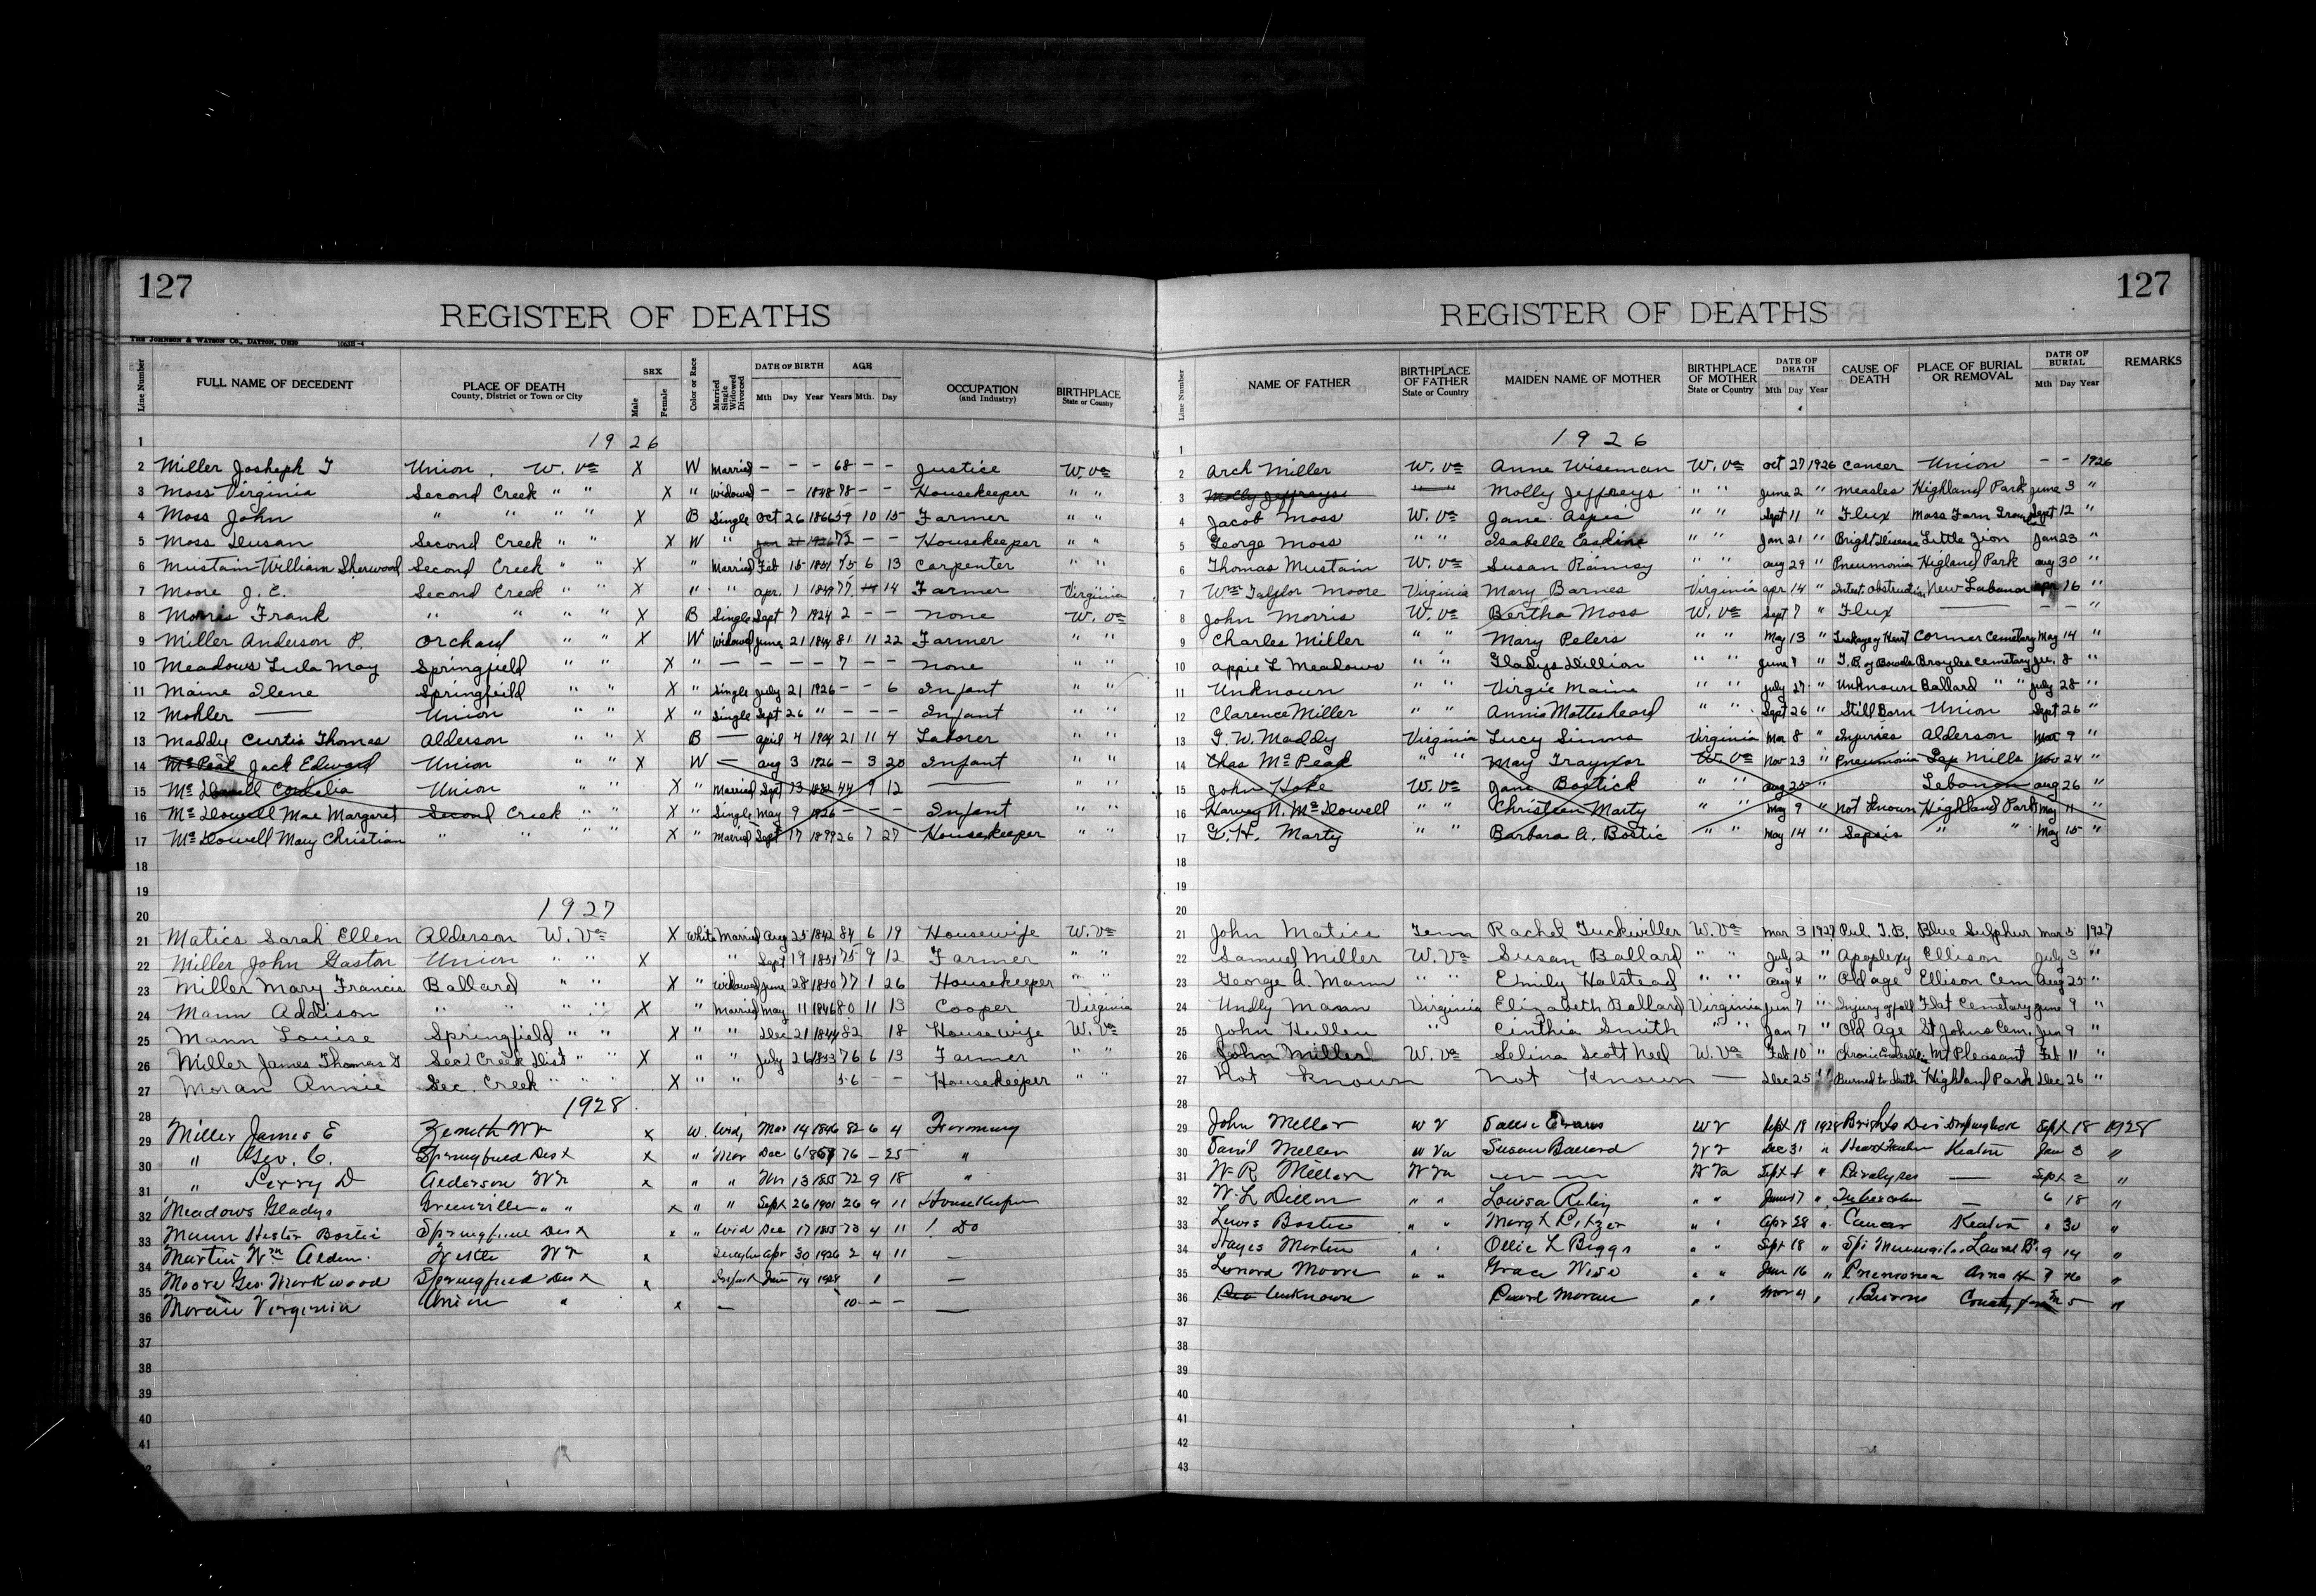 127
REGISTER OF DEATHS
THE JOHNSON & WATSON CO., DAYTON, OHIO
Line Number FULL NAME OF DECEDENT PLACE OF DEATH County, District or Town or City SEX Male Female Color or Race Married Single Widowed Divorced DATE OF BIRTH Mth Day Year AGE Years Mth. Day OCCUPATION (and Industry) BIRTHPLACE State or Country
1 1926
2 Miller Josheph T Union, W. Va X W Married — — — 68 — — Justice W. Va
3 Moss Virginia Second Creek " " X " Widowed — — 1848 78 — — Housekeeper " "
4 Moss John " " " " X B Single Oct 26 1866 59 10 15 Farmer " "
5 Moss Susan Second Creek " " X W " Jan 21 1926 72 — — Housekeeper " "
6 Mustain William Sherwood Second Creek " " X " Married Feb 15 1851 75 6 13 Carpenter " "
7 Moore J. E. Second Creek " X " " Apr. 1 1849 14 Farmer Virginia
8 Morris Frank " " " " X B Single Sept 7 1924 2 — — None W. Va
9 Miller Anderson P. Orchard " " X W Widowed June 21 1844 81 11 22 Farmer " "
10 Meadows Lula May Springfield " " X " — — — — 7 — — None " "
11 Maine Ilene Springfeild " " X " Single July 21 1926 — — 6 Infant " "
12 Mohler — Union " " X " Single Sept 26 " — — — Infant " "
13 Maddy Curtis Thomas Alderson " " X B — April 4 1904 21 11 4 Laborer " "
14 Mc Peak Jack Edward Union " " X W — Aug 3 1926 — 3 20 Infant " "
15 Mc Dowell Cordelia Union " " X " Married Sept 13 1882 44 9 12 — " "
16 Mc Dowell Mae Margaret Second Creek " X " Single May 9 1926 — — — Infant " "
17 Mc Dowell Mary Christian " " " " X " Married Sept 17 1899 26 7 27 Housekeeper " "
18
19
20 1927
21 Matics Sarah Ellen Alderson W. Va X White Married Aug 25 1842 84 6 19 Housewife W. Va
22 Miller John Gaston Union " " X " Sept 19 1851 75 9 12 Farmer " "
23 Miller Mary Francis Ballard " " X " Widowed June 28 1850 77 1 26 Housekeeper " "
24 Mann Addison " " " " X " Married May 11 1846 80 11 13 Cooper Virginia
25 Mann Louise Springfield " " X " " Dec 21 1844 82 18 Housewife W. Va
26 Miller James Thomas G Sec. Creek Dist " " X " " July 26 1853 76 6 13 Farmer " "
27 Moran Annie Sec. Creek " " X " " 56 — — Housekeeper " "
28 1928
29 Miller James E Zenith W V x W. Wid, Mar 14 1846 82 6 4 Farming
30 " Geo. C. Springfield Dist x " Mar Dec 6 76 — 25 "
31 " Perry D Alderson W V x " " Nov 13 1855 72 9 18 "
32 Meadows Gladys Greenville " " x " " Sept 26 1901 26 9 11 House Keeper
33 Mann Hester Bostic Springfield Dist x " Wid Dec 17 1855 73 4 11 Do
34 Martin Wm Alden. W V x Single Apr 30 1926 2 4 11 —
35 Moore Geo. Markwood Springfield Dist x Infant Jan 14 1928 1 —
36 Moran Virginia Union " x — 10 — — —
37
38
39
40
41
127
REGISTER OF DEATHS
Line Number NAME OF FATHER BIRTHPLACE OF FATHER State or Country MAIDEN NAME OF MOTHER BIRTHPLACE OF MOTHER State or Country DATE OF DEATH Mth Day Year CAUSE OF DEATH PLACE OF BURIAL OR REMOVAL DATE OF BURIAL Mth Day Year REMARKS
1 1926
2 Arch Miller W. Va Anne Wiseman W. Va Oct 27 1926 Cancer Union — — 1926
3 Molly Jeffreys " " Molly Jeffreys " " June 2 " Measles Highland Park June 3 "
4 Jacob Moss W. Va Jane Aspes " " Sept 11 " Flux Moss Farm Sept 12 "
5 George Moss " " Isabelle Erskine " " Jan 21 " Bright Disease Little Zion Jan 23 "
6 Thomas Mustain W. Va Susan Ramsy " " Aug 29 " Pneumonia Higland Park Aug 30 "
7 Wm Taylor Moore Virginia Mary Barnes Virginia Apr 14 " Intest. Obstruction New Lebanon Apr 16 "
8 John Morris W. Va Bertha Moss W. Va Sept 7 " Flux — — — "
9 Charles Miller " " Mary Peters " " May 13 " Leakage of Heart Cormer Cemetary May 14 "
10 Appie L Meadows " " Gladys Dillion " " June 7 " T. B. of Bowels Broyles Cemetary Ju. 8 "
11 Unknown " " Virgie Maine " " July 27 " Unknown Ballard " " July 28 "
12 Clarence Miller " " Annie Mottesheard " " Sept 26 " Still Born Union Sept 26 "
13 G. W. Maddy Virginia Lucy Simms Virginia Mar 8 " Injuries Alderson Mar 9 "
14 Chas Mc Peak " " May Traynor W. Va Nov 23 " Pneumonia Gap Mills Nov 24 "
15 John Hoke W. Va Jane Bostick " " Aug 25 " Lebanon Aug 26 "
16 Harvey N. Mc Dowell " " Christian Marty " " May 9 " Not Known Highland Park May 11 "
17 G. H. Marty " " Barbara A. Bostic " " May 14 " Sepsis " " May 15 "
18
19
20
21 John Matics Tenn Rachel Tuckwiller W. Va Mar 3 1927 Pul. T. B. Blue Sulphur Mar 5 1927
22 Samuel Miller W. Va Susan Ballard " " July 2 " Apoplexy Ellison July 3 "
23 George A. Mann " " Emily Halstead " " Aug 4 " Old age Ellison Cem Aug 25 "
24 Undly Mann Virginia Elizabeth Ballard Virginia Jun 7 " Injury of fall Flat Cemetary June 9 "
25 John Hullen " Cinthia Smith " " Jan 7 " Old Age St Johns Cem. Jan 9 "
26 John Miller W. Va Selina Scott Neel W. Va Feb 10 " Chronic Mt Pleasant Feb 11 "
27 Not Known Not Known — Dec 25 " Burned to death Highland Park Dec 26 "
28
29 John Miller W V Sallie Evans W V Sept 18 1928 Brights Dis Sept 18 1928
30 David Miller W Va Susan Ballard W V Dec 31 " Heart Keaton Jan 3 "
31 W R Miller W Va — — — W Va Sept 1 " Paralysis — Sept 2 "
32 W. L Dillon " " Louisa " " June 17 " Tubercular — 6 18 "
33 Lewis Bostic " " Margt Pitzer " " Apr 28 " Cancer Keaton " 30 "
34 Hayes Martin " " Ollie L Biggs " " Sept 18 " Spi Menengitis Laurel B. 9 14 "
35 Lenord Moore " " Grace Wise " " Jan 16 " Pnemonia "
36 Unknown Pearl Moran " " Nov 4 " Burns County Farm 5 "
37
38
39
40
41
42
43